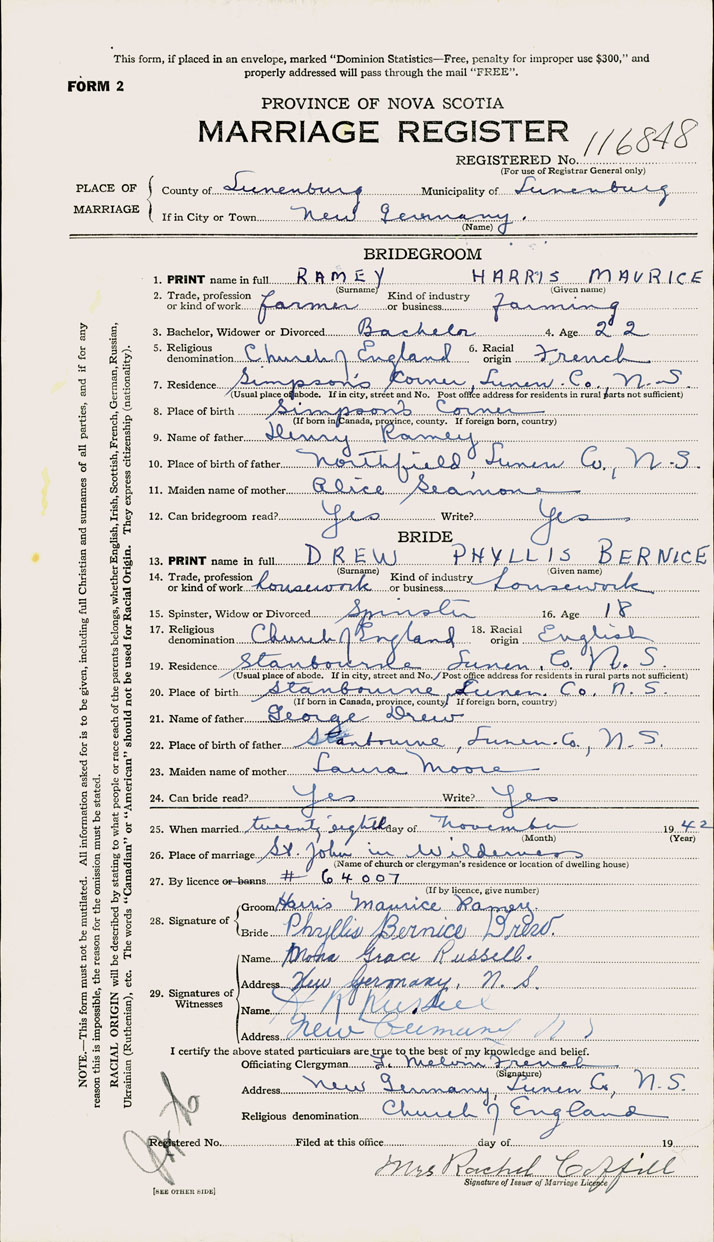 This form, if placed in an envelope, marked "Dominion Statistics—Free, penalty for improper use $300," and
properly addressed will pass through the mail "FREE".
FORM 2
PROVINCE OF NOVA SCOTIA
MARRIAGE REGISTER
116848
REGISTERED No.
(For use of Registrar General only)
PLACE OF MARRIAGE
County of Lunenburg Municipality of Lunenburg
If in City or Town New Germany.
(Name)
BRIDEGROOM
1. PRINT name in full RAMEY HARRIS MAURICE
(Surname) (Given name)
2. Trade, profession or kind of work farmer Kind of industry or business farming
3. Bachelor, Widower or Divorced Bachelor 4. Age 22
5. Religious denomination Church of England 6. Racial origin French
7. Residence Simpson's Corner, Lunen. Co., N.S.
(Usual place of abode. If in city, street and No. Post office address for residents in rural parts not sufficient)
8. Place of birth Simpson's Corner
(If born in Canada, province, county. If foreign born, country)
9. Name of father Henry Ramey
10. Place of birth of father Northfield, Lunen Co., N.S.
11. Maiden name of mother Alice Seamone
12. Can bridegroom read? Yes Write? Yes
BRIDE
13. PRINT name in full DREW PHYLLIS BERNICE
(Surname) (Given name)
14. Trade, profession or kind of work housework Kind of industry or business housework
15. Spinster, Widow or Divorced Spinster 16. Age 18
17. Religious denomination Church of England 18. Racial origin English
19. Residence Stanbourne Lunen. Co. N.S.
(Usual place of abode. If in city, street and No. Post office address for residents in rural parts not sufficient)
20. Place of birth Stanbourne, Lunen. Co. N.S.
(If born in Canada, province, county. If foreign born, country)
21. Name of father George Drew
22. Place of birth of father Stanbourne, Lunen. Co., N.S.
23. Maiden name of mother Laura Moore
24. Can bride read? Yes Write? Yes
25. When married twenty eighth day of November 1942
(Month) (Year)
26. Place of marriage St. John in Wilderness
(Name of church or clergyman's residence or location of dwelling house)
27. By licence or banns # 64007
(If by licence, give number)
28. Signature of
Groom Harris Maurice Ramey.
Bride Phyllis Bernice Drew.
29. Signatures of Witnesses
Name Mona Grace Russell.
Address New Germany, N.S.
Name Russell
Address New Germany N S
I certify the above stated particulars are true to the best of my knowledge and belief.
Officiating Clergyman Melvin French
(Signature)
Address New Germany, Lunen Co, N.S.
Religious denomination Church of England
Registered No. Filed at this office day of 19
Mrs Rachel Coffill
Signature of Issuer of Marriage Licence
[SEE OTHER SIDE]
NOTE.—This form must not be mutilated. All information asked for is to be given, including full Christian and surnames of all parties, and if for any
reason this is impossible, the reason for the omission must be stated.
RACIAL ORIGIN will be described by stating to what people or race each of the parents belongs, whether English, Irish, Scottish, French, German, Russian,
Ukrainian (Ruthenian), etc. The words "Canadian" or "American" should not be used for Racial Origin. They express citizenship (nationality).